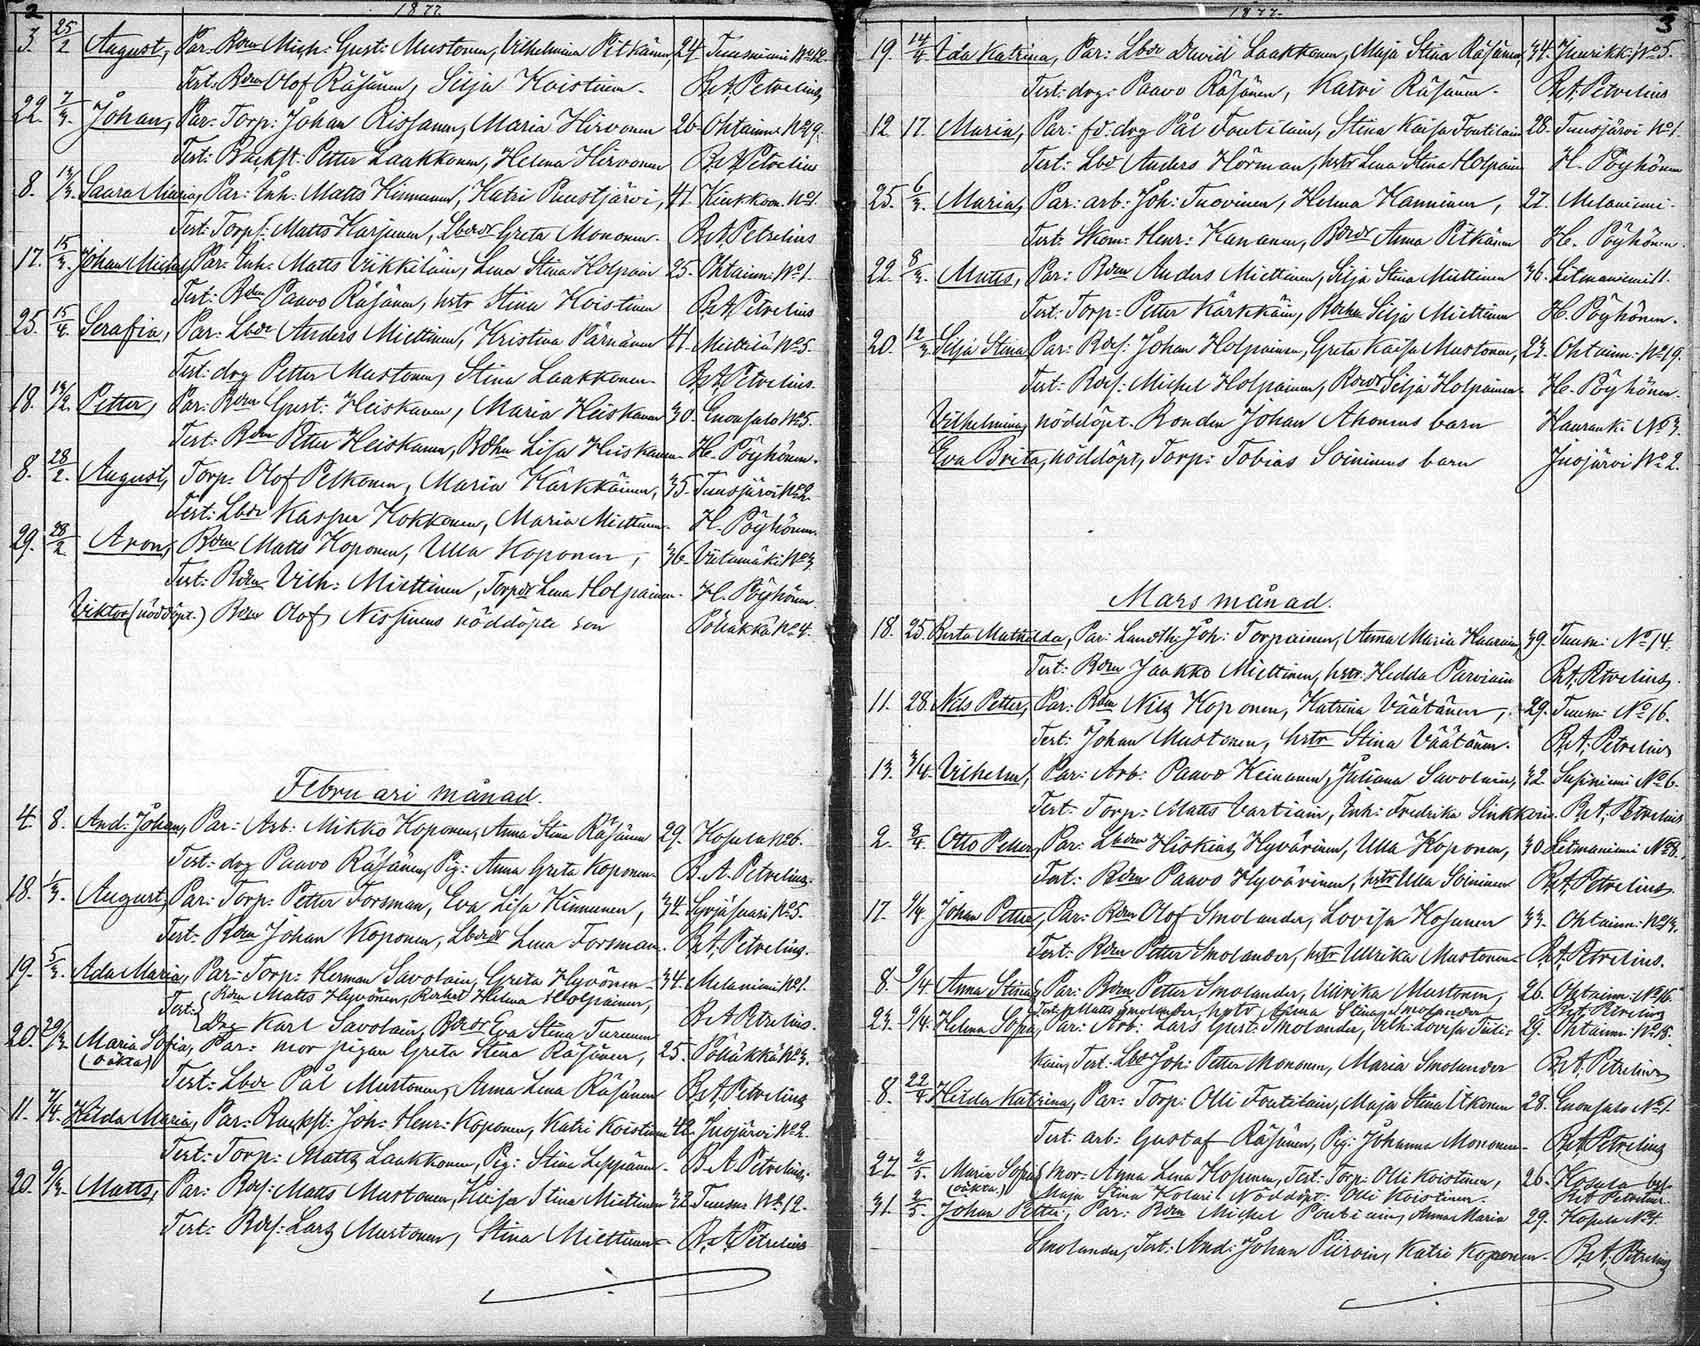 2
1877.
3. 25/2 August, Par: Bdm Mich: Gust: Mustonen, Vilhelmina Pitkänen, 24. Tuusniemi No 12.
Test: Bdm Olof Räsänen, Silja Koistinen. B. A. Petrelius
22. 7/3. Johan, Par: Torp: Johan Rissanen, Maria Hirvonen 26. Ohtaann: No 9.
Test: Backst: Petter Laakkonen, Helena Hirvonen B. A. Petrelius
8. Saara Maria, Par: Inh: Matts Kinnunen, Katri Puustjärvi, 41. No 1.
Test: Torps: Matts Karjunen, Greta Mononen. B. A. Petrelius
17. 15/3. Johan Michel, Par: Inh: Matts Vikkiläin, Lena Stina Holpain 25. Ohtaann: No 1.
Test: Bdm Paavo Räsänen, hstr Stina Koistinen B. A. Petrelius
25. 15/4. Serafia, Par: Lbde Anders Miettinen, Kristina Pärnänen 41. Miettilä No 5.
Test: drg Petter Mustonen, Stina Laakkonen. B. A. Petrelius.
18. Petter, Par: Bdm Gust: Heiskanen, Maria Heiskanen 30. Enonsalo No 5.
Test: Bdm Petter Heiskanen, Lisa Heiskanen H. Pöyhönen.
8. 28/2. August, Torp: Olof Pelkonen, Maria Kärkkäinen, 35. Tuusjärvi No 2.
Test: Lbde Kasper Kokkonen, Maria Miettinen. H. Pöyhönen.
29. 28/2 Aron, Bdm Matts Koponen, Ulla Koponen, 36. No 3.
Test: Bdm Vilh: Miettinen, Lena Holpainen. H. Pöyhönen.
Viktor (nöddöpt.) Bdm Olof Nissinens nöddöpta son Pölläkkä No 4.
Februari månad.
4. 8. And: Johan, Par: Arb: Mikko Koponen, Anna Stina Räsänen 29. Kosula No 6.
Test: drg Paavo Räsänen, Pig: Anna Greta Koponen. B. A. Petrelius.
18. 1/3. August, Par: Torp: Petter Forsman, Eva Lisa Kinnunen, 34. Syrjäsaari No 5.
Test: Bdm Johan Koponen, Lena Forsman. B. A. Petrelius.
19. 5/3. Ada Maria, Par: Torp: Herman Savolain, Greta Hyvönen 34. Melaniemi No 1.
Test: { Bdm Matts Hyvönen, Helena Holpainen,
Drg Karl Savolain, Eva Stina Turunen B. A. Petrelius.
20. 29/3. Maria Sofia, Par: mor pigan Greta Stina Räsänen, 25. Pölläkkä No 3.
(oäkta)
Test: Lbde Pål Mustonen, Anna Lena Räsänen B. A. Petrelius
11. 2/4. Hilda Maria, Par: Backst: Joh: Henr: Koponen, Katri Koistinen 42. Juojärvi No 2.
Test: Torp: Matts Laakkonen, Pig: Stina Leppänen. B. A. Petrelius.
20. 9/3. Matts, Par: Matts Mustonen, Stina Miettinen 32. Tuusn: No 12.
Test: Lars Mustonen, Stina Miettinen B. A. Petrelius
3
1877.
19. 14/4. Ida Katrina, Par: Lbde David Laakkonen, Maja Stina Räsänen, 34. Juurikk: No 5.
Test: drg: Paavo Räsänen, Katri Räsänen. B. A. Petrelius
12. 17. Maria, Par: fd. drg Pål Toutilain, Stina Kaisa Toutilain 28. Tuusjärvi No 1.
Test: Lbd Anders Hörman, hstr Lena Stina Holpainen H. Pöyhönen
25. 6/3. Maria, Par: arb: Joh: Tuovinen, Helena Hanninen, 27. Melaniemi.
Test: Henr: Kananen, Anna Pitkänen H. Pöyhönen.
22. 8/3. Matts, Par: Bdm Anders Miettinen, Silja Stina Miettinen 36. Litmaniemi 11.
Test: Torp: Petter Kärkkäin, Silja Miettinen H. Pöyhönen.
20. 12/3 Silja Stina, Par: Johan Holpainen, Greta Kaisa Mustonen, 23. Ohtaann: No 19.
Test: Michel Holpainen, Silja Holpainen. H. Pöyhönen.
Vilhelmina, nöddöpt. Bonden Johan Ahonens barn Hauranki No 3.
Eva Brita, nöddöpt, Torp: Tobias Soininens barn Juojärvi No 2.
Mars månad.
18. 25. Berta Mathilda, Par: Landth: Joh: Torpainen, Anna Maria 39. Tuusn: No 14.
Test: Bdm Jaakko Miettinen, hstr: Hedda Parviain B. A. Petrelius.
11. 28. Nils Petter, Par: Bdm Nils Koponen, Katrina Väätänen, 29. Tuusn: No 16.
Test: Johan Mustonen, hstr Stina Väätänen. B. A. Petrelius
13. 3/4. Vilhelm, Par: Arb: Paavo Keinanen, Juliana Savolain, 32. Susiniemi No 6.
Test: Torp: Matts Vartiain, Inh: Fredrika Sinkkoin. B. A. Petrelius
2. 8/4 Otto Petter, Par: Hiskias Hyvärinen, Ulla Koponen, 30. Litmaniemi No 8.
Test: Bdm Paavo Hyvärinen, hstr Ulla Soininen B. A. Petrelius.
17. 9/4. Johan Petter, Par: Bdm Olof Smolander, Lovisa Kosunen 33. Ohtaann: No 13.
Test: Bdm Petter Smolander, hstr Ullrika Mustonen. B. A. Petrelius.
8. 9/4. Anna Stina, Par: Bdm Peter Smolander, Ullrika Mustonen, 26. Ohtaann: No 16.
Test: Matts Smolander, hstr Anna Stina Smolander B. A. Petrelius
23. 9/4. Helena Sofia, Par: Arb: Lars Gust: Smolander, Vilh: Lovisa 29. Ohtaann: No 18.
kain, Test: Lbde Joh: Petter Mononen, Maria Smolander B. A. Petrelius
8. 22/4 Hilda Katrina, Par: Torp: Olli Toutilain, Maja Stina Itkonen 28. Enonsalo No 1.
Test: arb: Gustaf Räsänen, Pig: Johanna Mononen. B. A. Petrelius
27. 2/5. Maria Sofia, mor: Anna Lena Koponen, Test: Torp: Olli Koistinen, 26. Kosula by.
(oäkta.) Maja Stina Nöddöpt: Olli Koistinen. B. A. Petrelius.
31. 2/5. Johan Petter, Par: Bdm Michel Poutiain, Anna Maria 29. Kosula No 4.
Smolander, Test: And: Johan Piirain, Katri Koponen. B. A. Petrelius